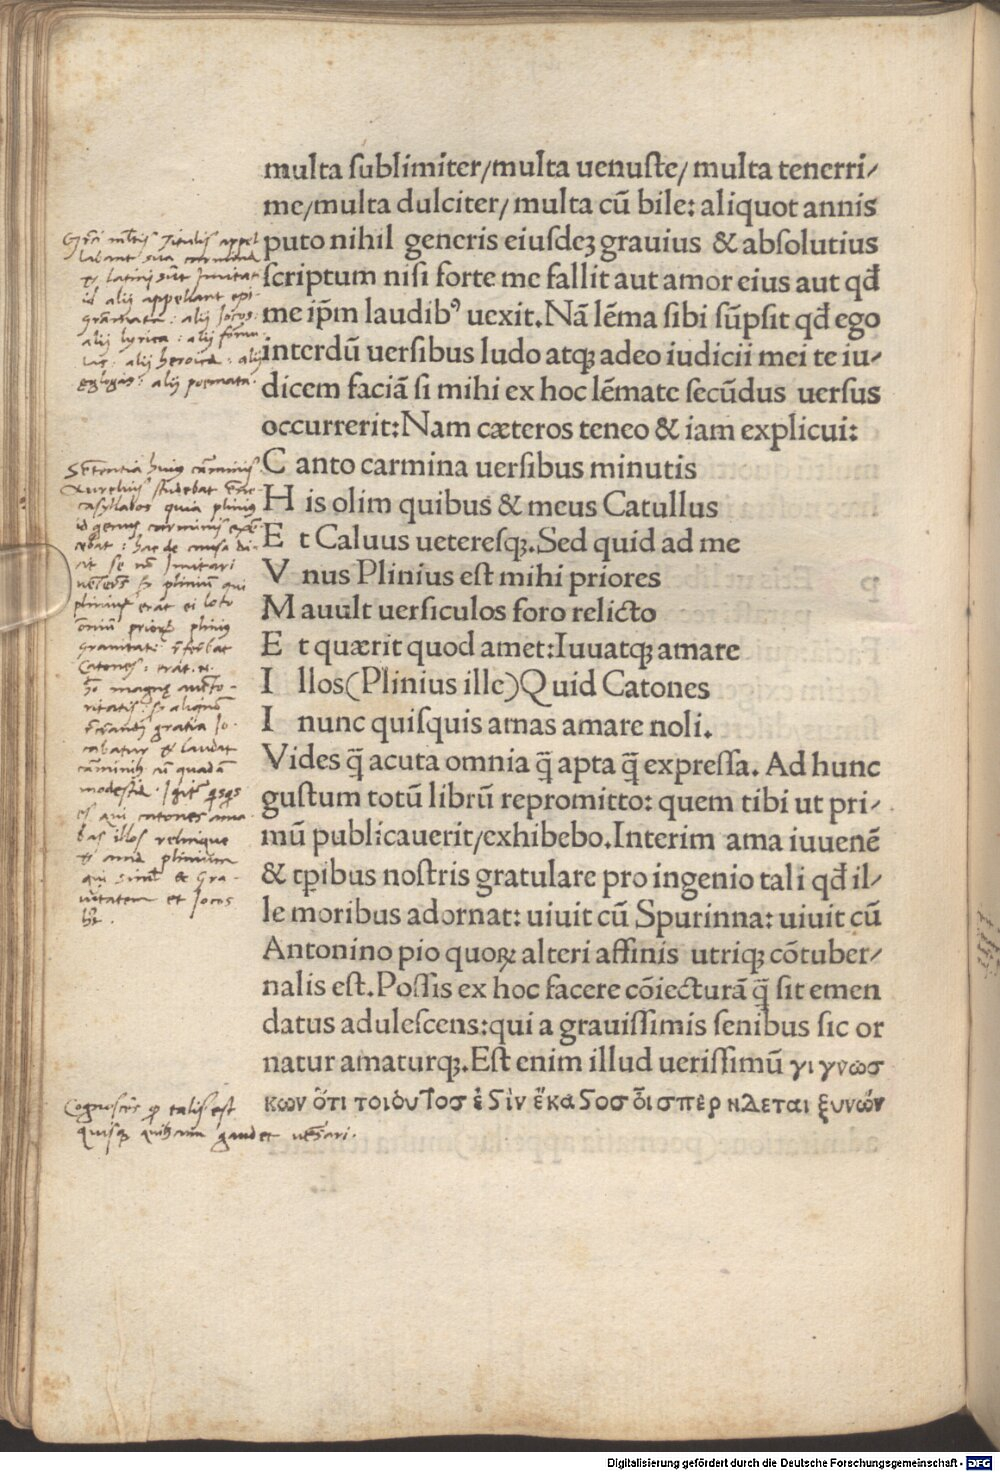 multa ſublimiter/multa uenuſte/ multa tenerri/
me/multa dulciter/ multa cū bile: aliquot annis
puto nihil generis eiuſdeꝫ grauius & abſolutius
ſcriptum niſi forte me fallit aut amor eius aut qđ
me ip̄m laudibꝰ uexit. Nā lēma ſibi ſūpſit qđ ego
interdū uerſibus ludo atqꝫ adeo iudicii mei te iu/
dicem faciā ſi mihi ex hoc lēmate ſecūdus uerſus
occurrerit: Nam cæteros teneo & iam explicui:
C anto carmina uerſibus minutis
H is olim quibus & meus Catullus
E t Caluus uetereſqꝫ. Sed quid ad me
V nus Plinius eſt mihi priores
M auult uerſiculos foro relicto
E t quærit quod amet: Iuuatqꝫ amare
I llos(Plinius ille)Quid Catones
I nunc quiſquis amas amare noli.
Vides q̄ acuta omnia q̄ apta q̄ expreſſa. Ad hunc
guſtum totū librū repromitto: quem tibi ut pri/
mū publicauerit/exhibebo. Interim ama iuuenē
& tꝑibus noſtris gratulare pro ingenio tali qđ il/
le moribus adornat: uiuit cū Spurinna: uiuit cū
Antonino pio quoꝝ alteri affinis utriqꝫ cōtuber/
nalis eſt. Poſſis ex hoc facere cōiecturā q̄ ſit emen
datus adulefcens: qui a grauiſſimis ſenibus ſic or
natur amaturqꝫ. Eſt enim illud ueriſſimū γι γνωσ
κων ὅτι τοιοῦτοσ ἐϛὶν ἕκαϛοσ οἷσπερ ηδεται ξυνών
labant sua carmina
alij appellant epi-
grammata: alij Jocos:
alij lyrica: alij
alij heroica: alij
eglogas: alij poemata.
Aurelius studebat
quia plinius
plinium qui
plinius erat ei loco
plinius
Catones: erat
gratia Jo-
cabatur & laudat
modestia.
qui catones ama
bas illos relinque
& ama plinium
qui simul & gra-
uitatem et Jocos
talis est
gaudet
Digitalisierung gefördert durch die Deutsche Forschungsgemeinschaft - DFG